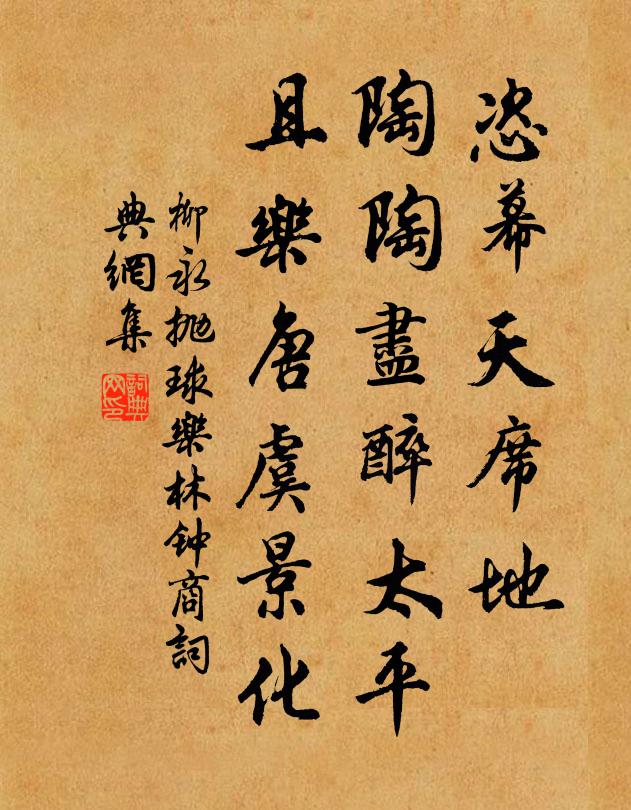 恣幕天席地
陶陶盡醉太平
且樂唐虞景化
柳永抛球樂林钟商詞
典網集
詞典
网印